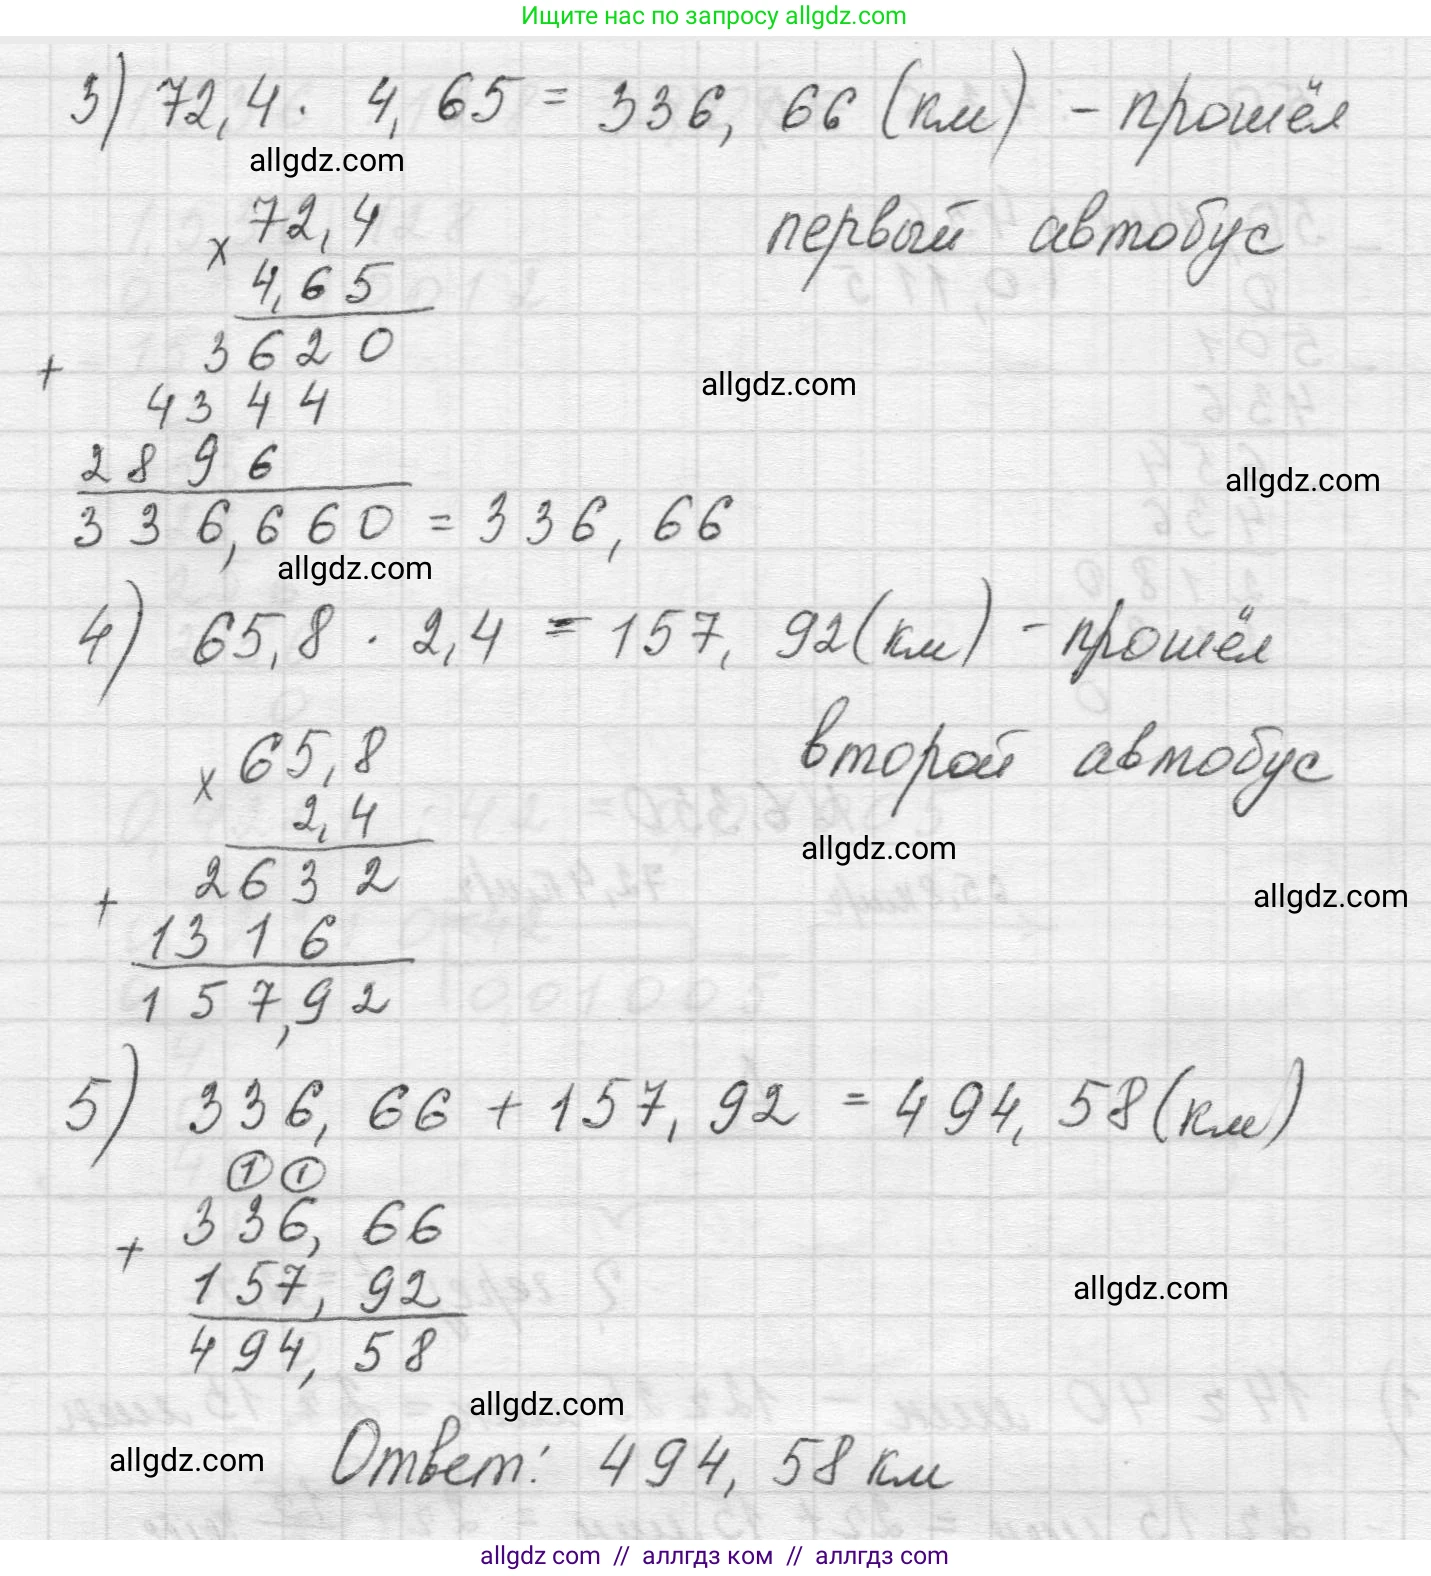 Ищите нас по запросу allgdz.com
3) 72,4 · 4,65 = 336,66 (км) - прошёл
allgdz.com
первый автобус
72,4
×
4,65
3620
+
4344
allgdz.com
2896
allgdz.com
336,660 = 336,66
allgdz.com
4) 65,8 · 2,4 = 157,92 (км) - прошёл
второй автобус
65,8
×
2,4
allgdz.com
2632
allgdz.com
+
1316
157,92
5) 336,66 + 157,92 = 494,58 (км)
1 1
336,66
+
157,92
allgdz.com
494,58
allgdz.com
allgdz.com
Ответ: 494,58 км
allgdz.com // аллгдз ком // аллгдз com